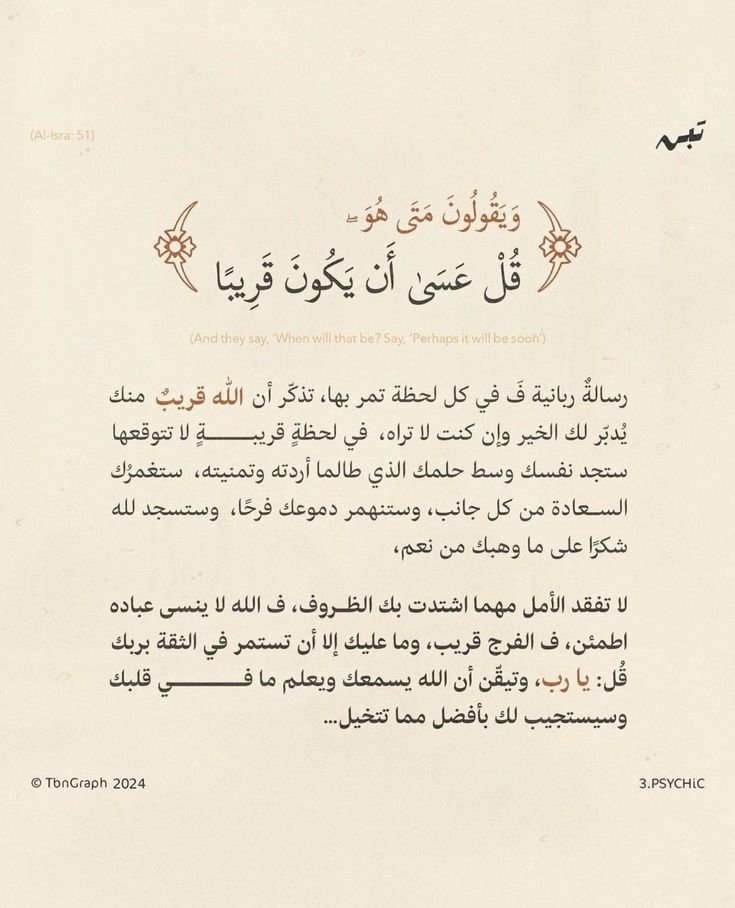 (Al-Isra: 51)
تبن
وَيَقُولُونَ مَتَى هُوَ ۖ
قُلْ عَسَىٰ أَن يَكُونَ قَرِيبًا
(And they say, ‘When will that be? Say, ‘Perhaps it will be soon’)
رسالةٌ ربانية فَ في كل لحظة تمر بها، تذكّر أن الله قريبٌ منك
يُدبّر لك الخير وإن كنت لا تراه، في لحظةٍ قريبـــــــةٍ لا تتوقعها
ستجد نفسك وسط حلمك الذي طالما أردته وتمنيته، ستغمرُك
الســعادة من كل جانب، وستنهمر دموعك فرحًا، وستسجد لله
شكرًا على ما وهبك من نعم،
لا تفقد الأمل مهما اشتدت بك الظـروف، ف الله لا ينسى عباده
اطمئن، ف الفرج قريب، وما عليك إلا أن تستمر في الثقة بربك
قُل: يا رب، وتيقّن أن الله يسمعك ويعلم ما فـــــــــي قلبك
وسيستجيب لك بأفضل مما تتخيل...
© TbnGraph 2024
3.PSYCHiC